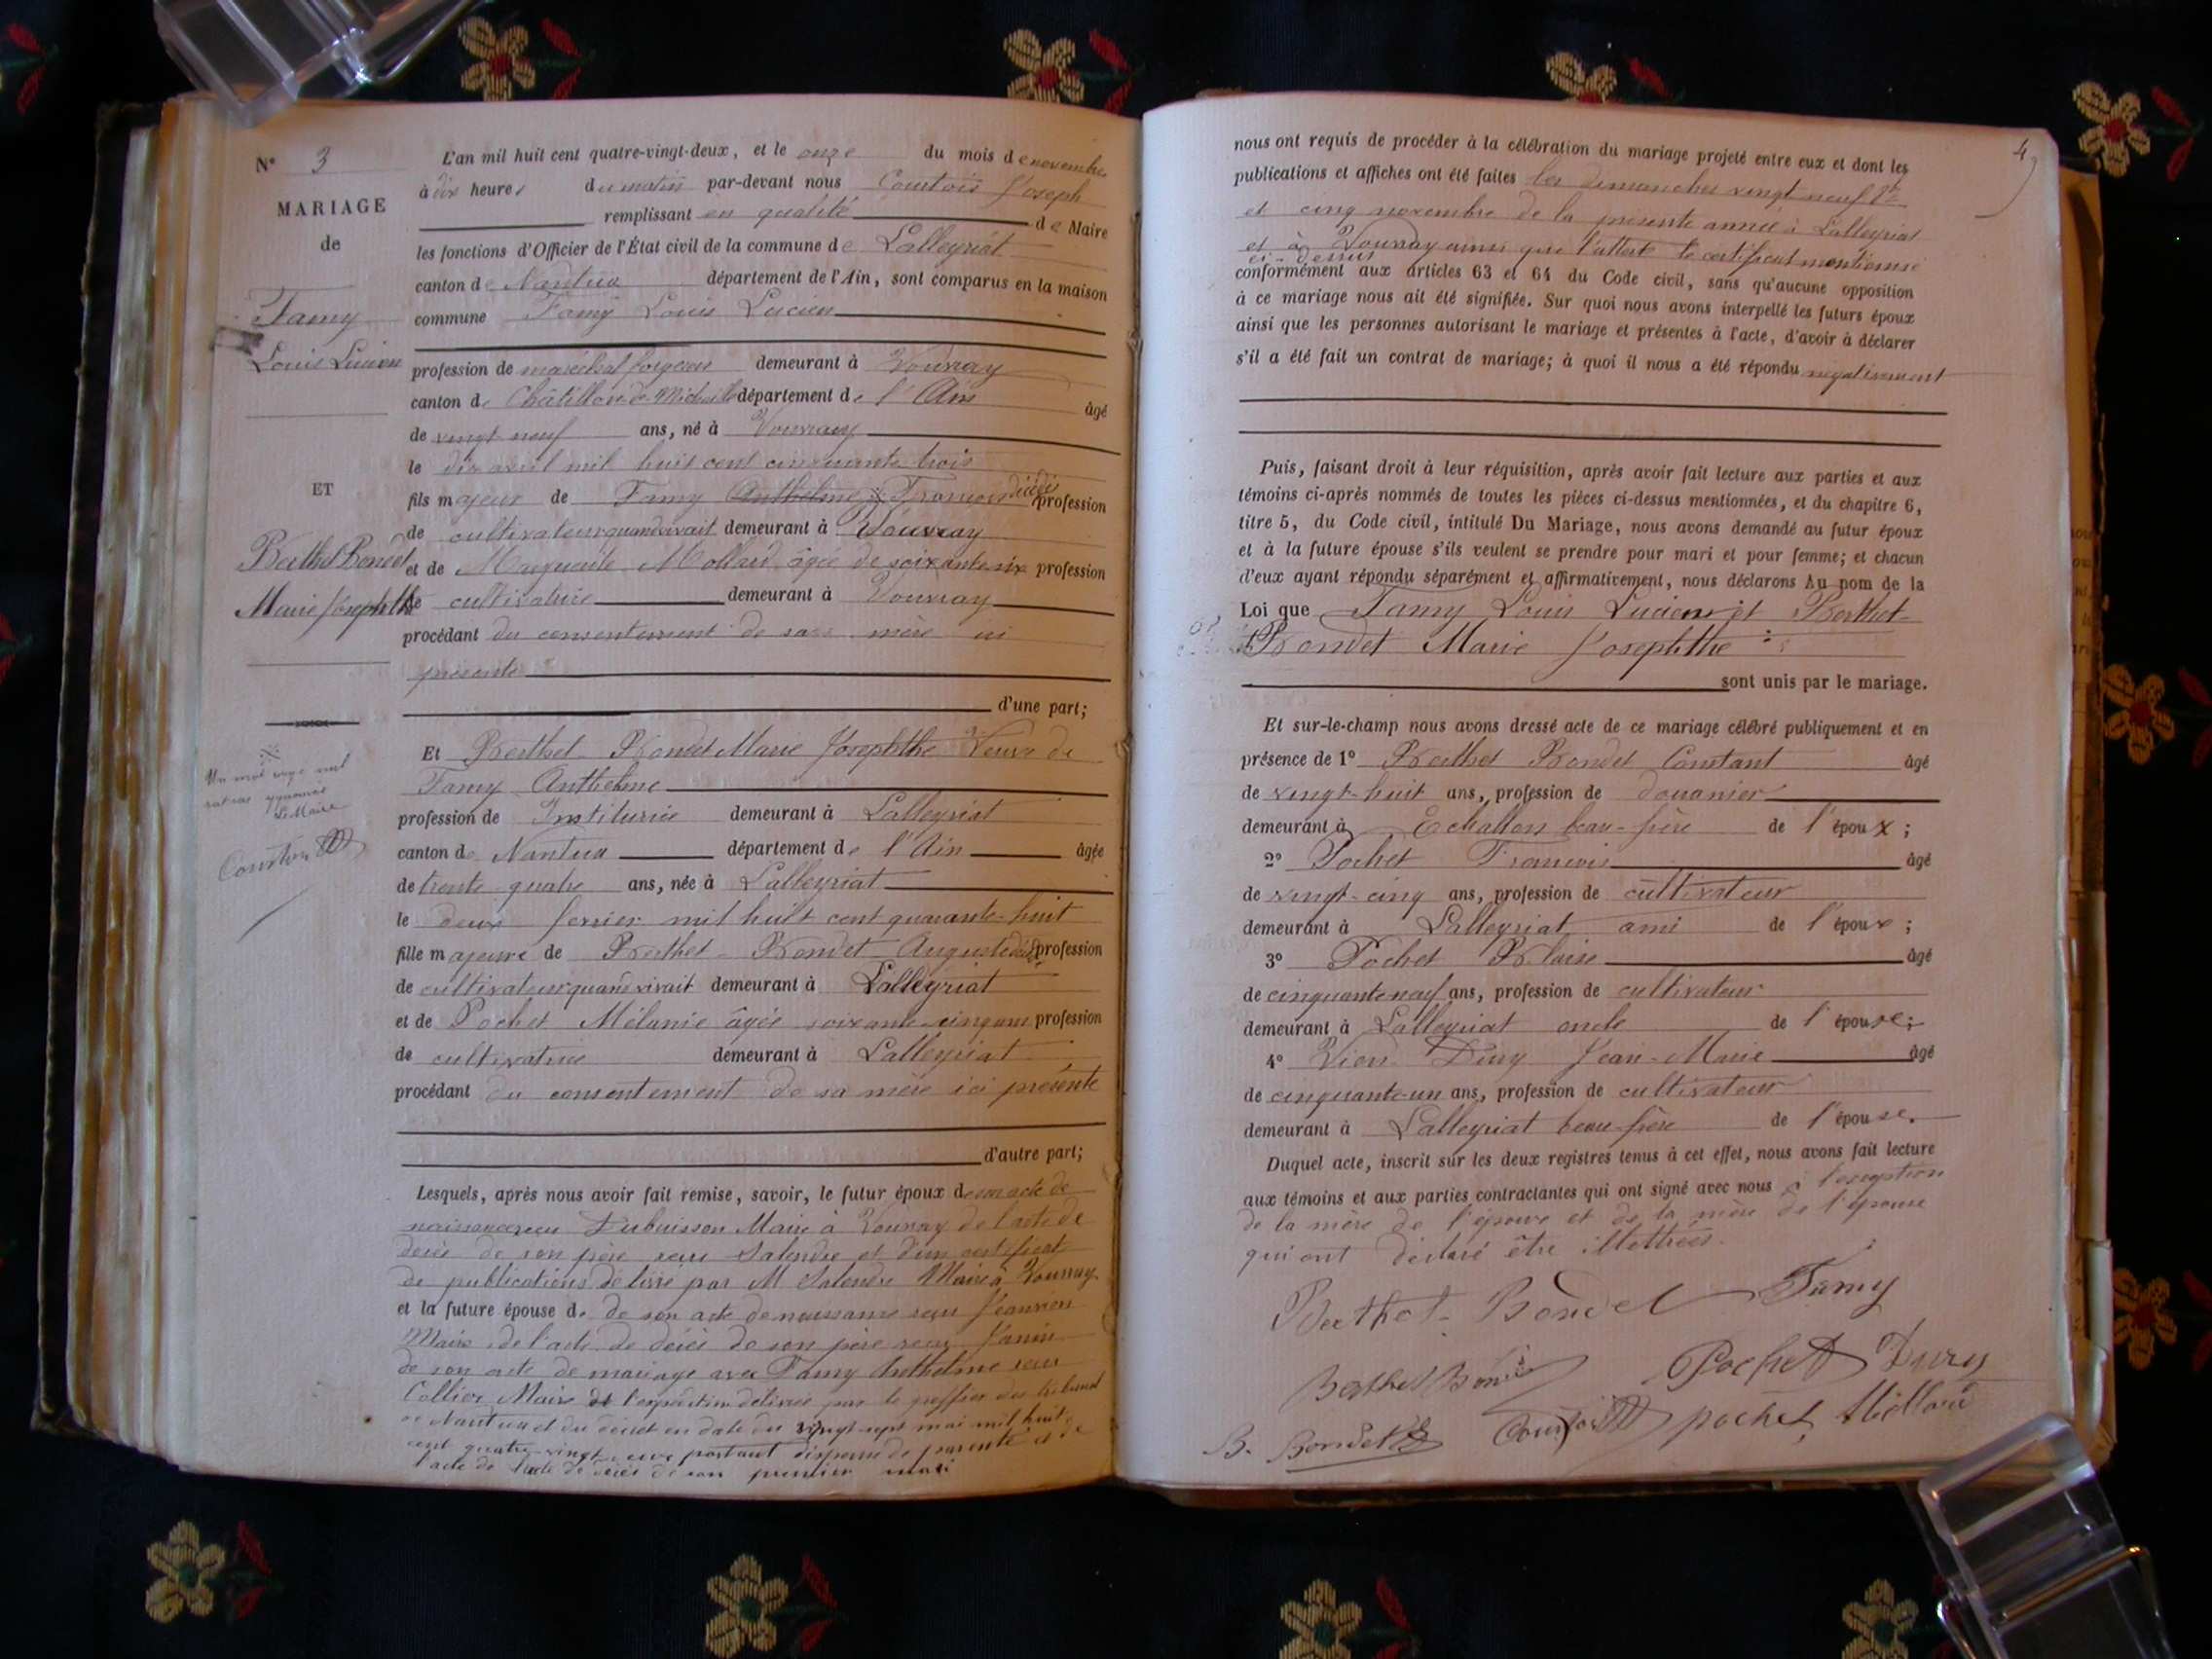 N° 3
MARIAGE
de
Famy
Louis Lucien
ET
Berthet Bondet
Marie Josephthe
Un mot rayé nul
Le Maire
Courtois
L'an mil huit cent quatre-vingt-deux, et le onze du mois de novembre
à dix heures du matin par-devant nous Courtois Joseph
remplissant en qualité de Maire
les fonctions d'Officier de l'État civil de la commune de Lalleyriat
canton de Nantua département de l'Ain, sont comparus en la maison
commune Famy Louis Lucien
profession de maréchal forgeron demeurant à Vouvray
canton de Châtillon-de-Michaille département de l'Ain âgé
de vingt neuf ans, né à Vouvray
le dix avril mil huit cent cinquante trois
fils majeur de Famy Anthelme François décédé profession
de cultivateur quand vivait demeurant à Vouvray
et de Marguerite Mollard âgée de soixante six profession
de cultivatrice demeurant à Vouvray
procédant du consentement de sa mère ici
présente
d'une part;
Et Berthet Bondet Marie Josephthe Veuve de
Famy Anthelme
profession de Institutrice demeurant à Lalleyriat
canton de Nantua département de l'Ain âgée
de trente quatre ans, née à Lalleyriat
le deux fevrier mil huit cent quarante-huit
fille majeure de Berthet-Bondet Auguste décédé profession
de cultivateur quand vivait demeurant à Lalleyriat
et de Pochet Mélanie âgée soixante-cinq ans profession
de cultivatrice demeurant à Lalleyriat
procédant du consentement de sa mère ici présente
d'autre part;
Lesquels, après nous avoir fait remise, savoir, le futur époux de son acte de
naissance reçu Dubuisson Maire à Vouvray de l'acte de
décès de son père reçu Salendre et d'un certificat
de publications délivré par M Salendre Maire à Vouvray
et la future épouse de de son acte de naissance reçu Jeanvion
Maire de l'acte de décès de son père reçu Janin
de son acte de mariage avec Famy Anthelme reçu
Collier Maire de l'expédition délivrée par le greffier du tribunal
de Nantua et du décret en date du vingt-sept mai mil huit
cent quatre-vingt portant dispense de parenté et de
l'acte de l'acte de décès de son premier mari
4
nous ont requis de procéder à la célébration du mariage projeté entre eux et dont les
publications et affiches ont été faites les dimanches vingt neuf 8bre
et cinq novembre de la présente année à Lalleyriat
et à Vouvray ainsi que l'atteste le certificat mentionné
ci-dessus
conformément aux articles 63 et 64 du Code civil, sans qu'aucune opposition
à ce mariage nous ait été signifiée. Sur quoi nous avons interpellé les futurs époux
ainsi que les personnes autorisant le mariage et présentes à l'acte, d'avoir à déclarer
s'il a été fait un contrat de mariage; à quoi il nous a été répondu négativement
Puis, faisant droit à leur réquisition, après avoir fait lecture aux parties et aux
témoins ci-après nommés de toutes les pièces ci-dessus mentionnées, et du chapitre 6,
titre 5, du Code civil, intitulé Du Mariage, nous avons demandé au futur époux
et à la future épouse s'ils veulent se prendre pour mari et pour femme; et chacun
d'eux ayant répondu séparément et affirmativement, nous déclarons Au nom de la
Loi que Famy Louis Lucien et Berthet-
Bondet Marie Josephthe
sont unis par le mariage.
Et sur-le-champ nous avons dressé acte de ce mariage célébré publiquement et en
présence de 1° Berthet Bondet Constant âgé
de vingt-huit ans, profession de douanier
demeurant à Echallon beau-frère de l'époux;
2° Pochet François âgé
de vingt-cinq ans, profession de cultivateur
demeurant à Lalleyriat ami de l'époux;
3° Pochet Blaise âgé
de cinquante neuf ans, profession de cultivateur
demeurant à Lalleyriat oncle de l'épouse;
4° Viou Dury Jean-Marie âgé
de cinquante-un ans, profession de cultivateur
demeurant à Lalleyriat beau-frère de l'épouse.
Duquel acte, inscrit sur les deux registres tenus à cet effet, nous avons fait lecture
aux témoins et aux parties contractantes qui ont signé avec nous à l'exception
de la mère de l'époux et de la mère de l'épouse
qui ont déclaré être illettrées.
Berthet-Bondet Famy
Berthet Bondet Pochet Dury
B. Bondet Courtois pochet Mollard